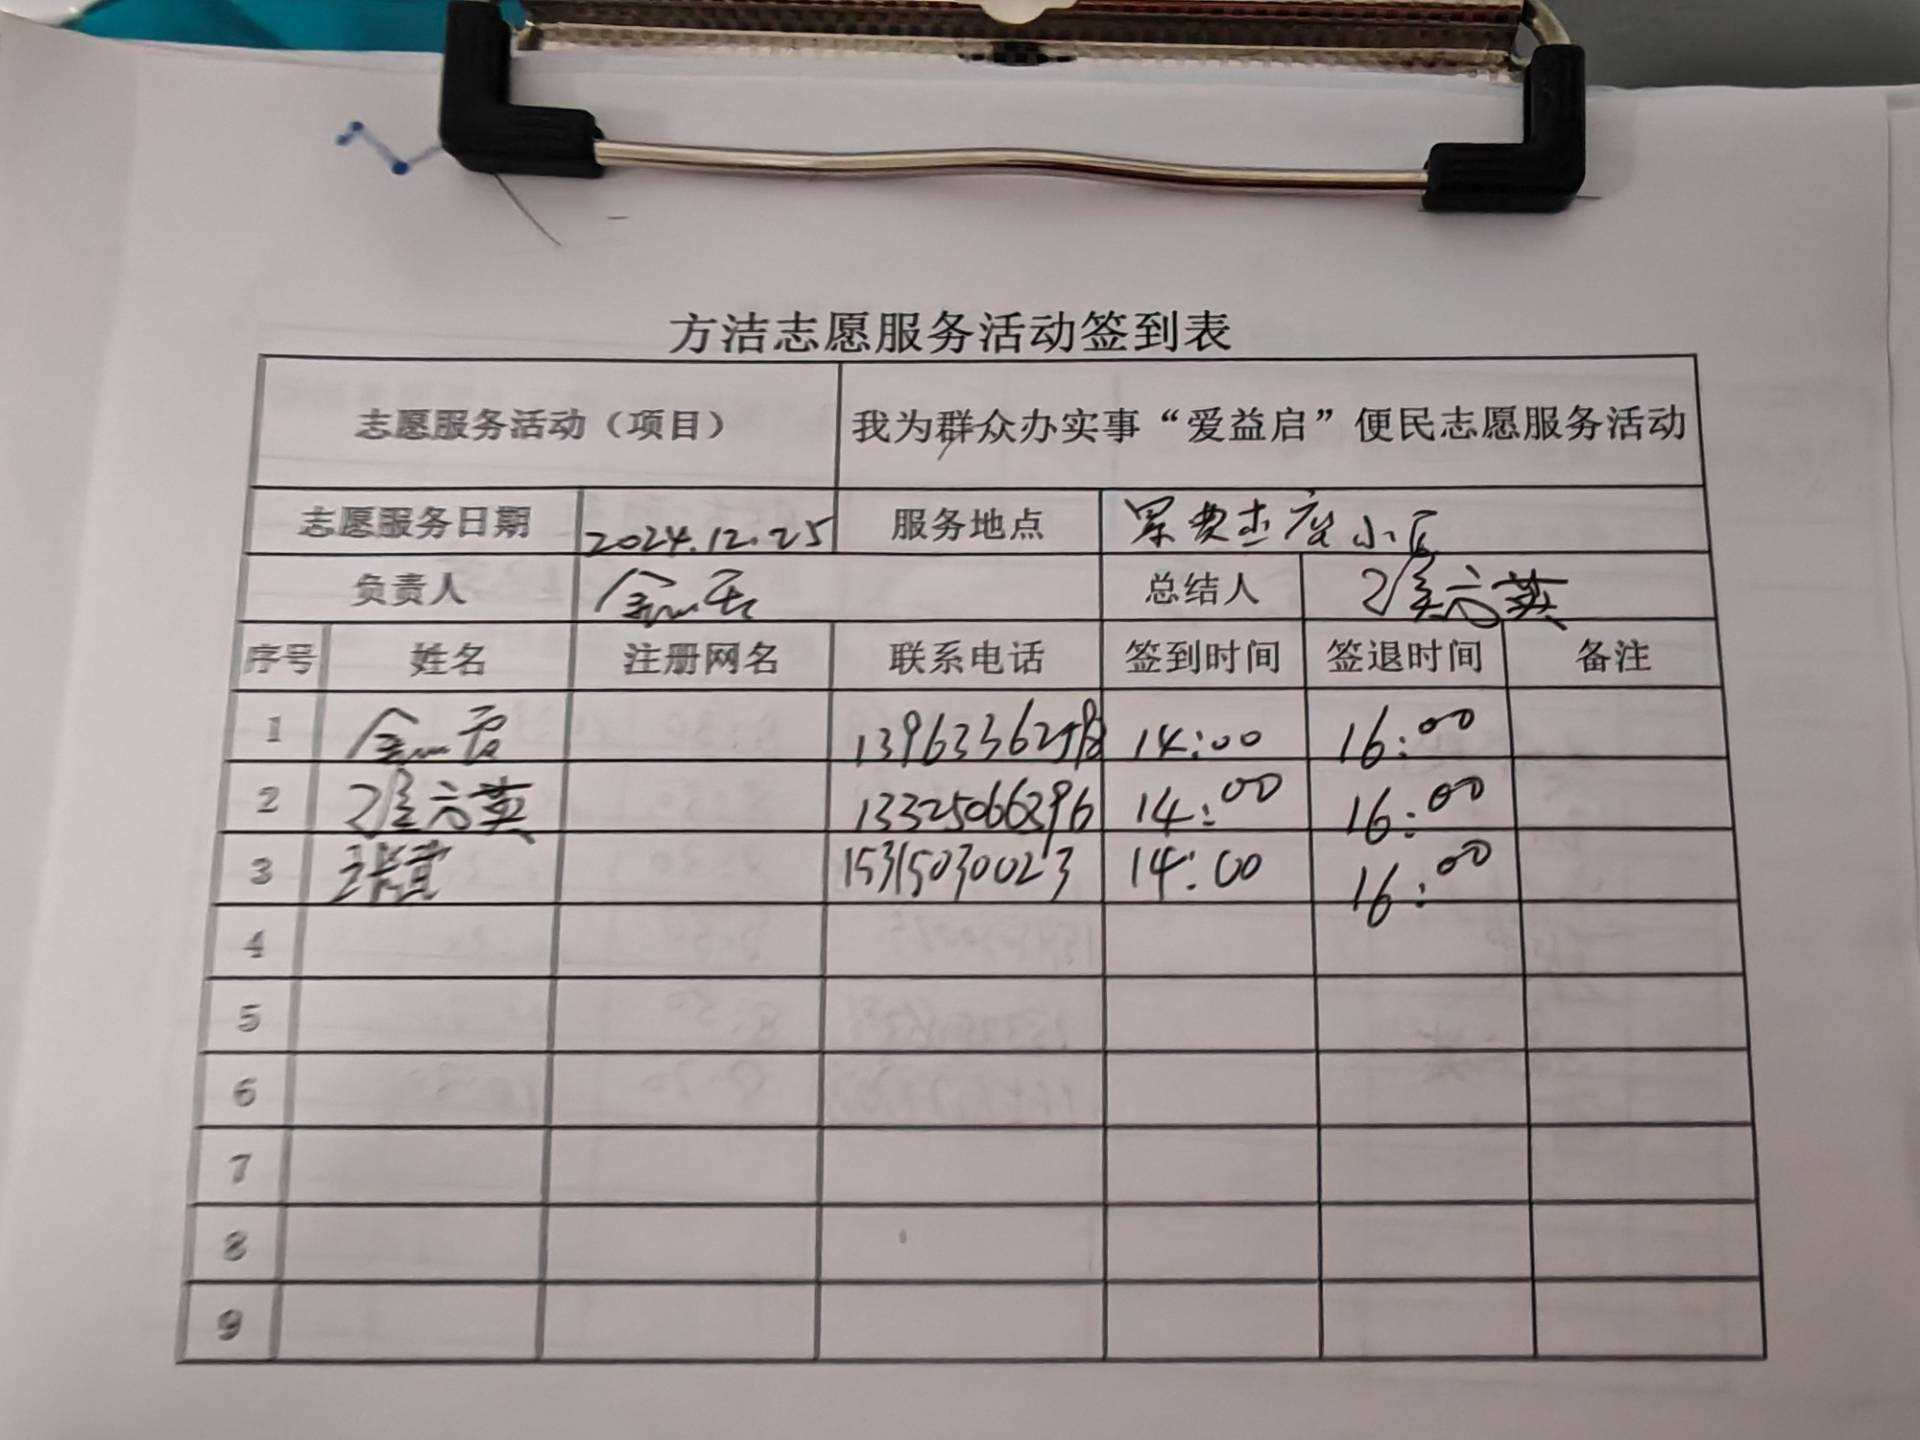 方洁志愿服务活动签到表
志愿服务活动（项目） 我为群众办实事“爱益启”便民志愿服务活动
志愿服务日期 2024.12.25 服务地点 小区
负责人 总结人
序号 姓名 注册网名 联系电话 签到时间 签退时间 备注
1 14:00 16:00
2 13325066396 14:00 16:00
3 15315030023 14:00 16:00
4
5
6
7
8
9